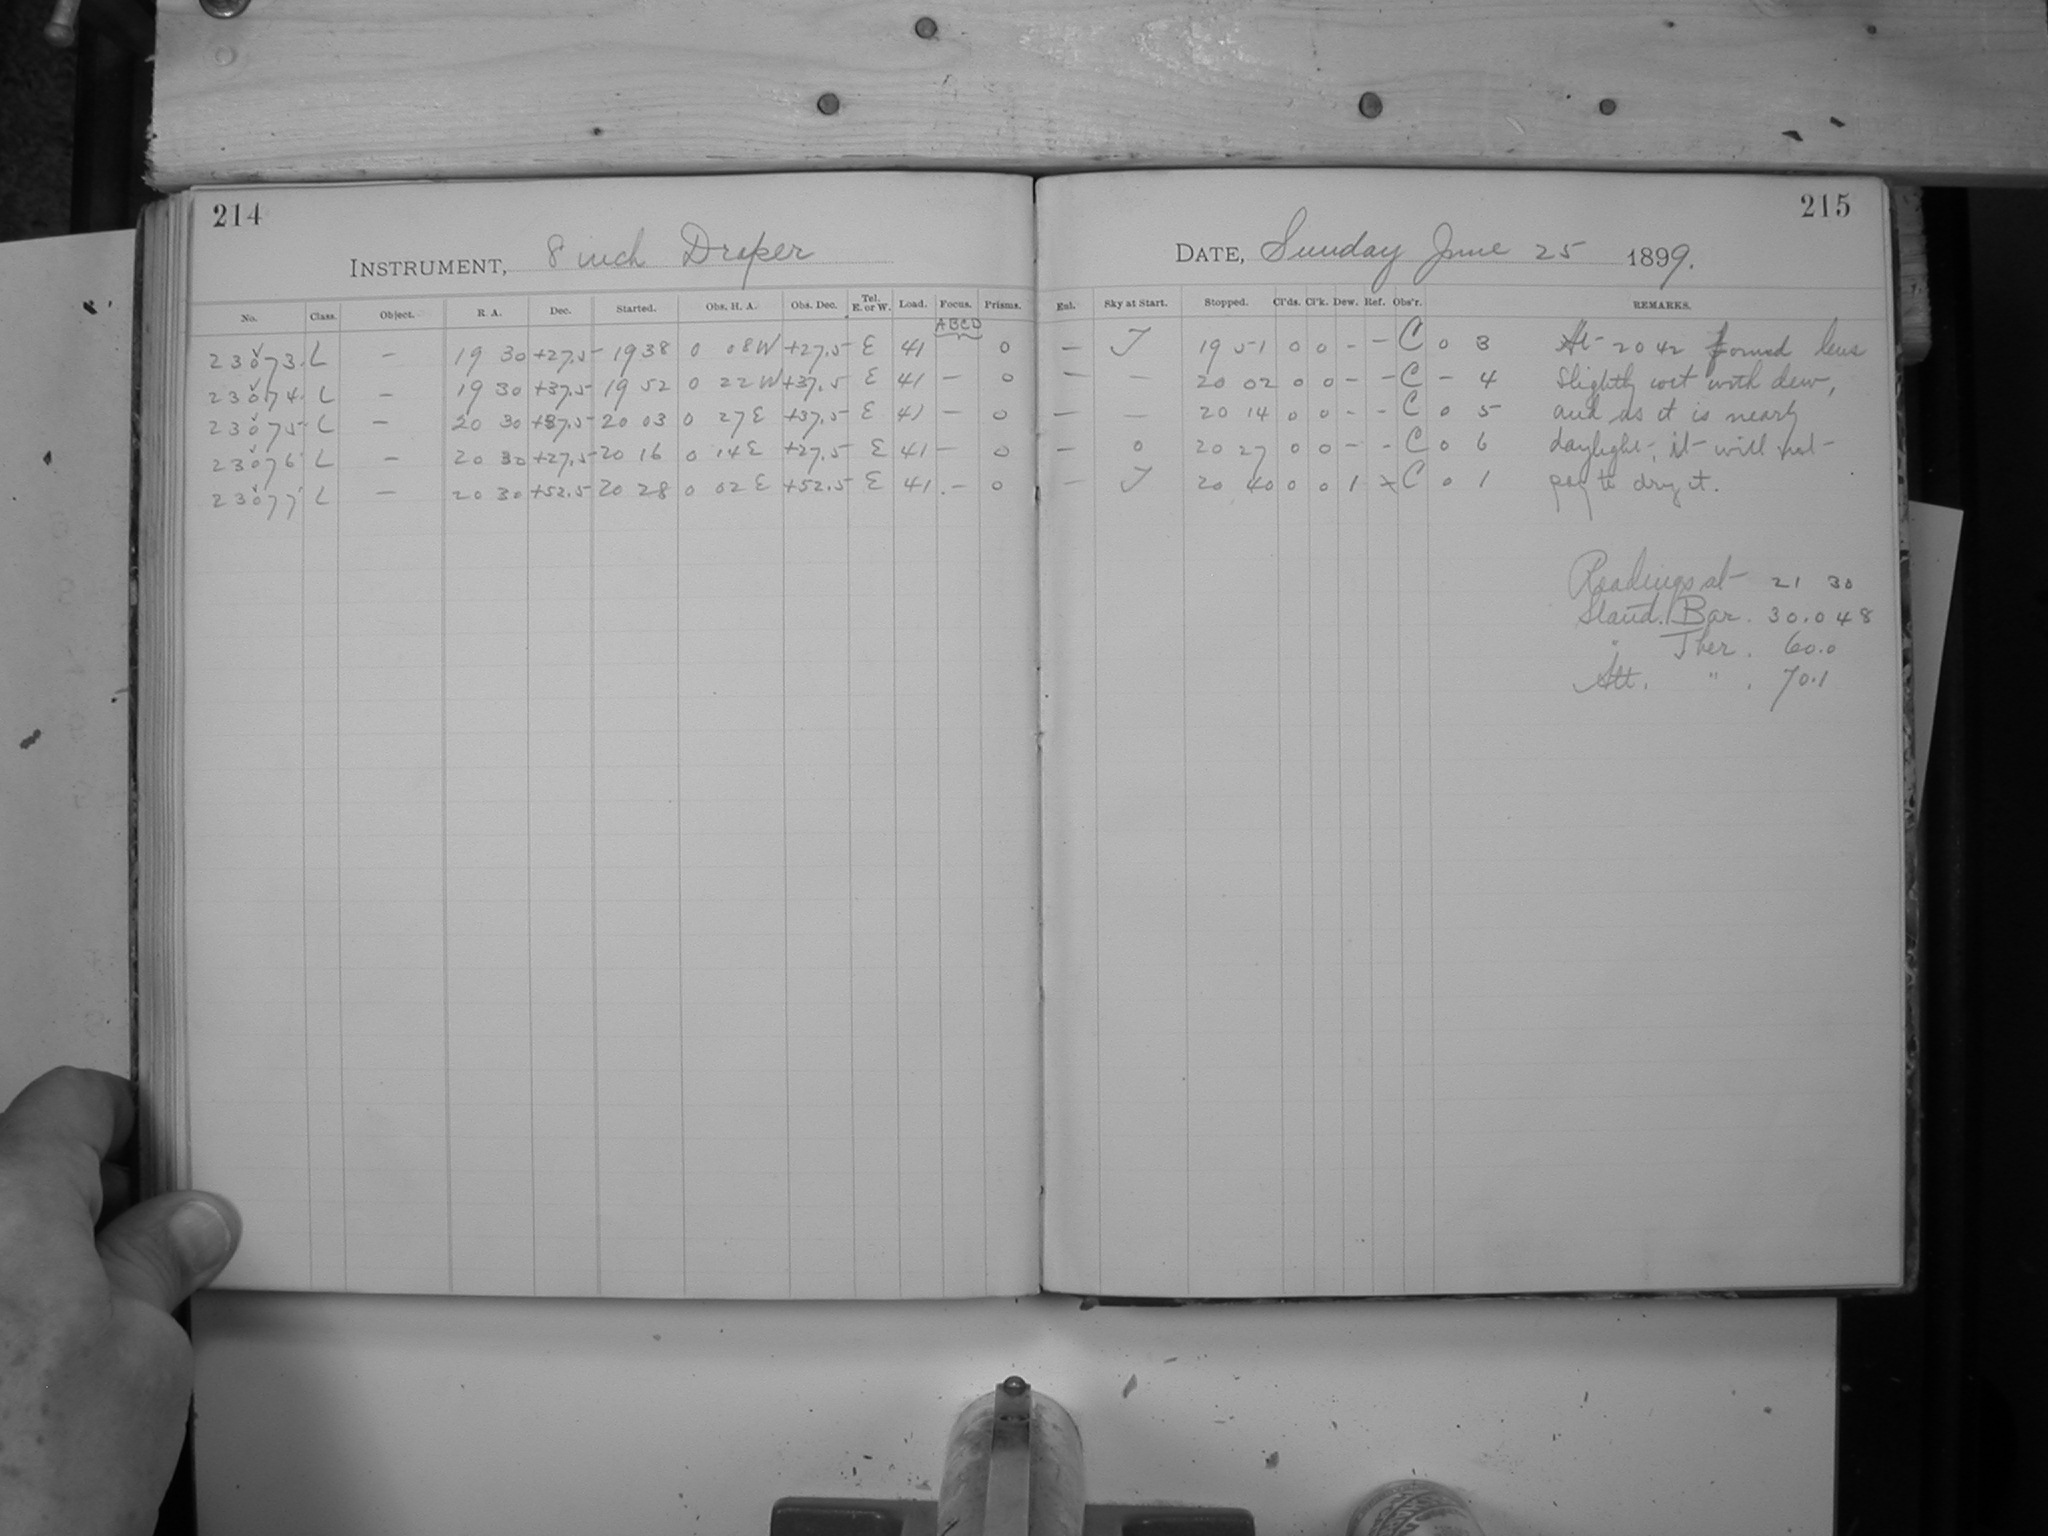 214
INSTRUMENT, 8 inch Draper
No. Class. Object. R. A. Dec. Started. Obs. H. A. Obs. Dec. Tel. E. or W. Load. Focus. Prisms.
ABCD
23073. L — 19 30 +27.5 19 38 0 08W +27.5 E 41 0
23074. L — 19 30 +37.5 19 52 0 22W +37.5 E 41 — 0
23075 L — 20 30 +37.5 20 03 0 27E +37.5 E 41 — 0
23076 L — 20 30 +27.5 20 16 0 14E +27.5 E 41 — 0
23077 L — 20 30 +52.5 20 28 0 02E +52.5 E 41 . — 0
215
DATE, Sunday June 25 1899.
Sky at Start. Stopped. Cl'ds. Cl'k. Dew. Ref. Obs'r. REMARKS.
— 19 51 0 0 - - C 0 3 At 20 42 found lens
— — 20 02 0 0 - - C - 4 slightly wet with dew,
— — 20 14 0 0 - - C 0 5 and as it is nearly
— 0 20 27 0 0 - - C 0 6 daylight, it will not
— 20 40 0 0 1 x C 0 1 pay to dry it.
Readings at 21 30
Stand. Bar. 30.048
" Ther. 60.0
Att. " . 70.1